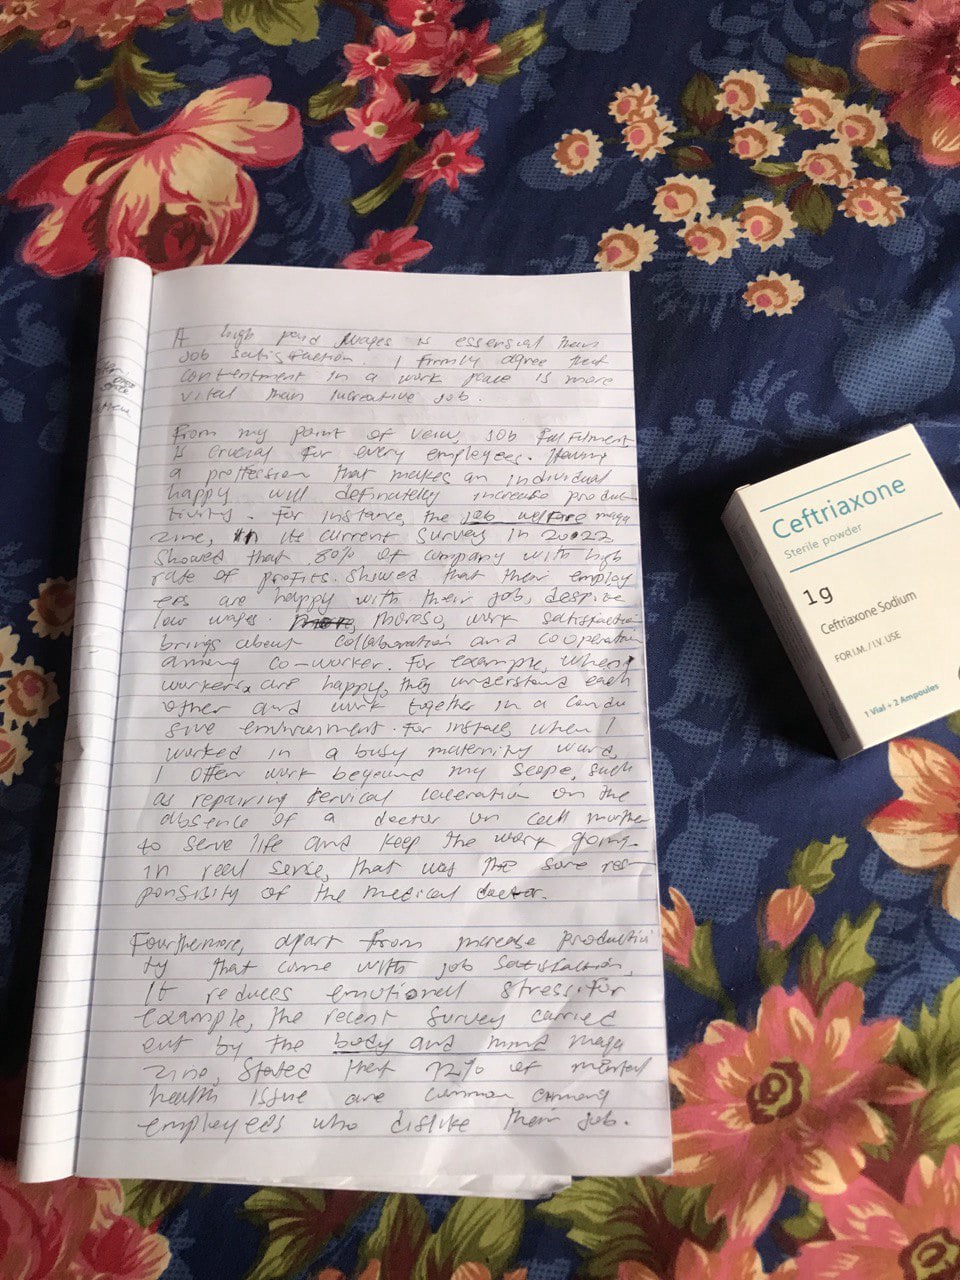 A high paid wages is essential than
job satisfaction I firmly agree that
contentment in a work place is more
vital than lucrative job.
From my point of veiw, job fulfilment
is crucial for every employees. Having
a proffession that makes an individual
happy will definately increase produc
tivity. For instance, the job welfare maga
zine, in its current survey in 2022
showed that 80% of company with high
rate of profits. showed that their employ
ees are happy with their job, despive
low wages. Moreso, work satisfaction
brings about collaboration and cooperation
among co-worker. For example, when
workers are happy, they understand each
other and work together in a condu
sive environment. For instace, when I
worked in a busy maternity ward,
I often work begeound my scope, such
as repairing cervical laceration on the
absence of a doctor on call
to serve life and keep the work going
in real sense, that was the sore res
ponsibility of the medical doctor.
Fourthermore, apart from increase productivi
ty that come with job satisfaction,
it reduces emotional stress. For
example, the recent survey carried
out by the body and mind maga
zine, stated that 72% of mental
health issue are common among
employees who dislike their job.
Ceftriaxone
Sterile powder
1g
Ceftriaxone Sodium
FOR I.M. / I.V. USE
1 Vial + 2 Ampoules